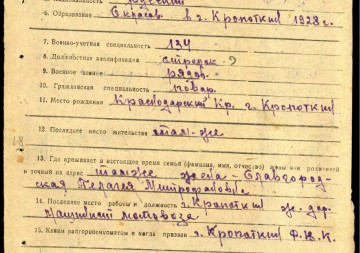 6. Образование 6 классов в г. Кропоткин 1928 г.
7. Военно-учетная специальность 134
8. Должностная квалификация стрелок
9. Военное звание рядов.
10. Гражданская специальность повар
11. Место рождения Краснодарский Кр. г. Кропоткин
12. Последнее место жительства там-же
13. Где проживает в настоящее время семья (фамилия, имя, отчество) жены или родителей
и точный их адрес там же жена - Славгород-
ская Пелагея Митрофановна
14. Последнее место работы и должность г. Кропоткин ж. дор.
Машинист мотовоза
15. Каким райгорвоенкоматом и когда призван г. Кропоткин